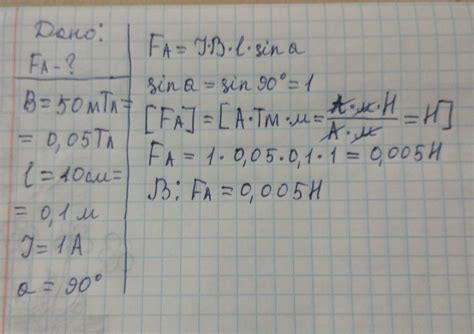 Дано:
FА - ?
B = 50мТл =
= 0,05Тл
l = 10см =
= 0,1 м
J = 1А
a = 90°
FА = J·B·l·sin a
sin a = sin 90° = 1
[FА] = [А·Тм·м = А·м·Н / А·м = Н]
FА = 1·0,05·0,1·1 = 0,005Н
В: FА = 0,005Н